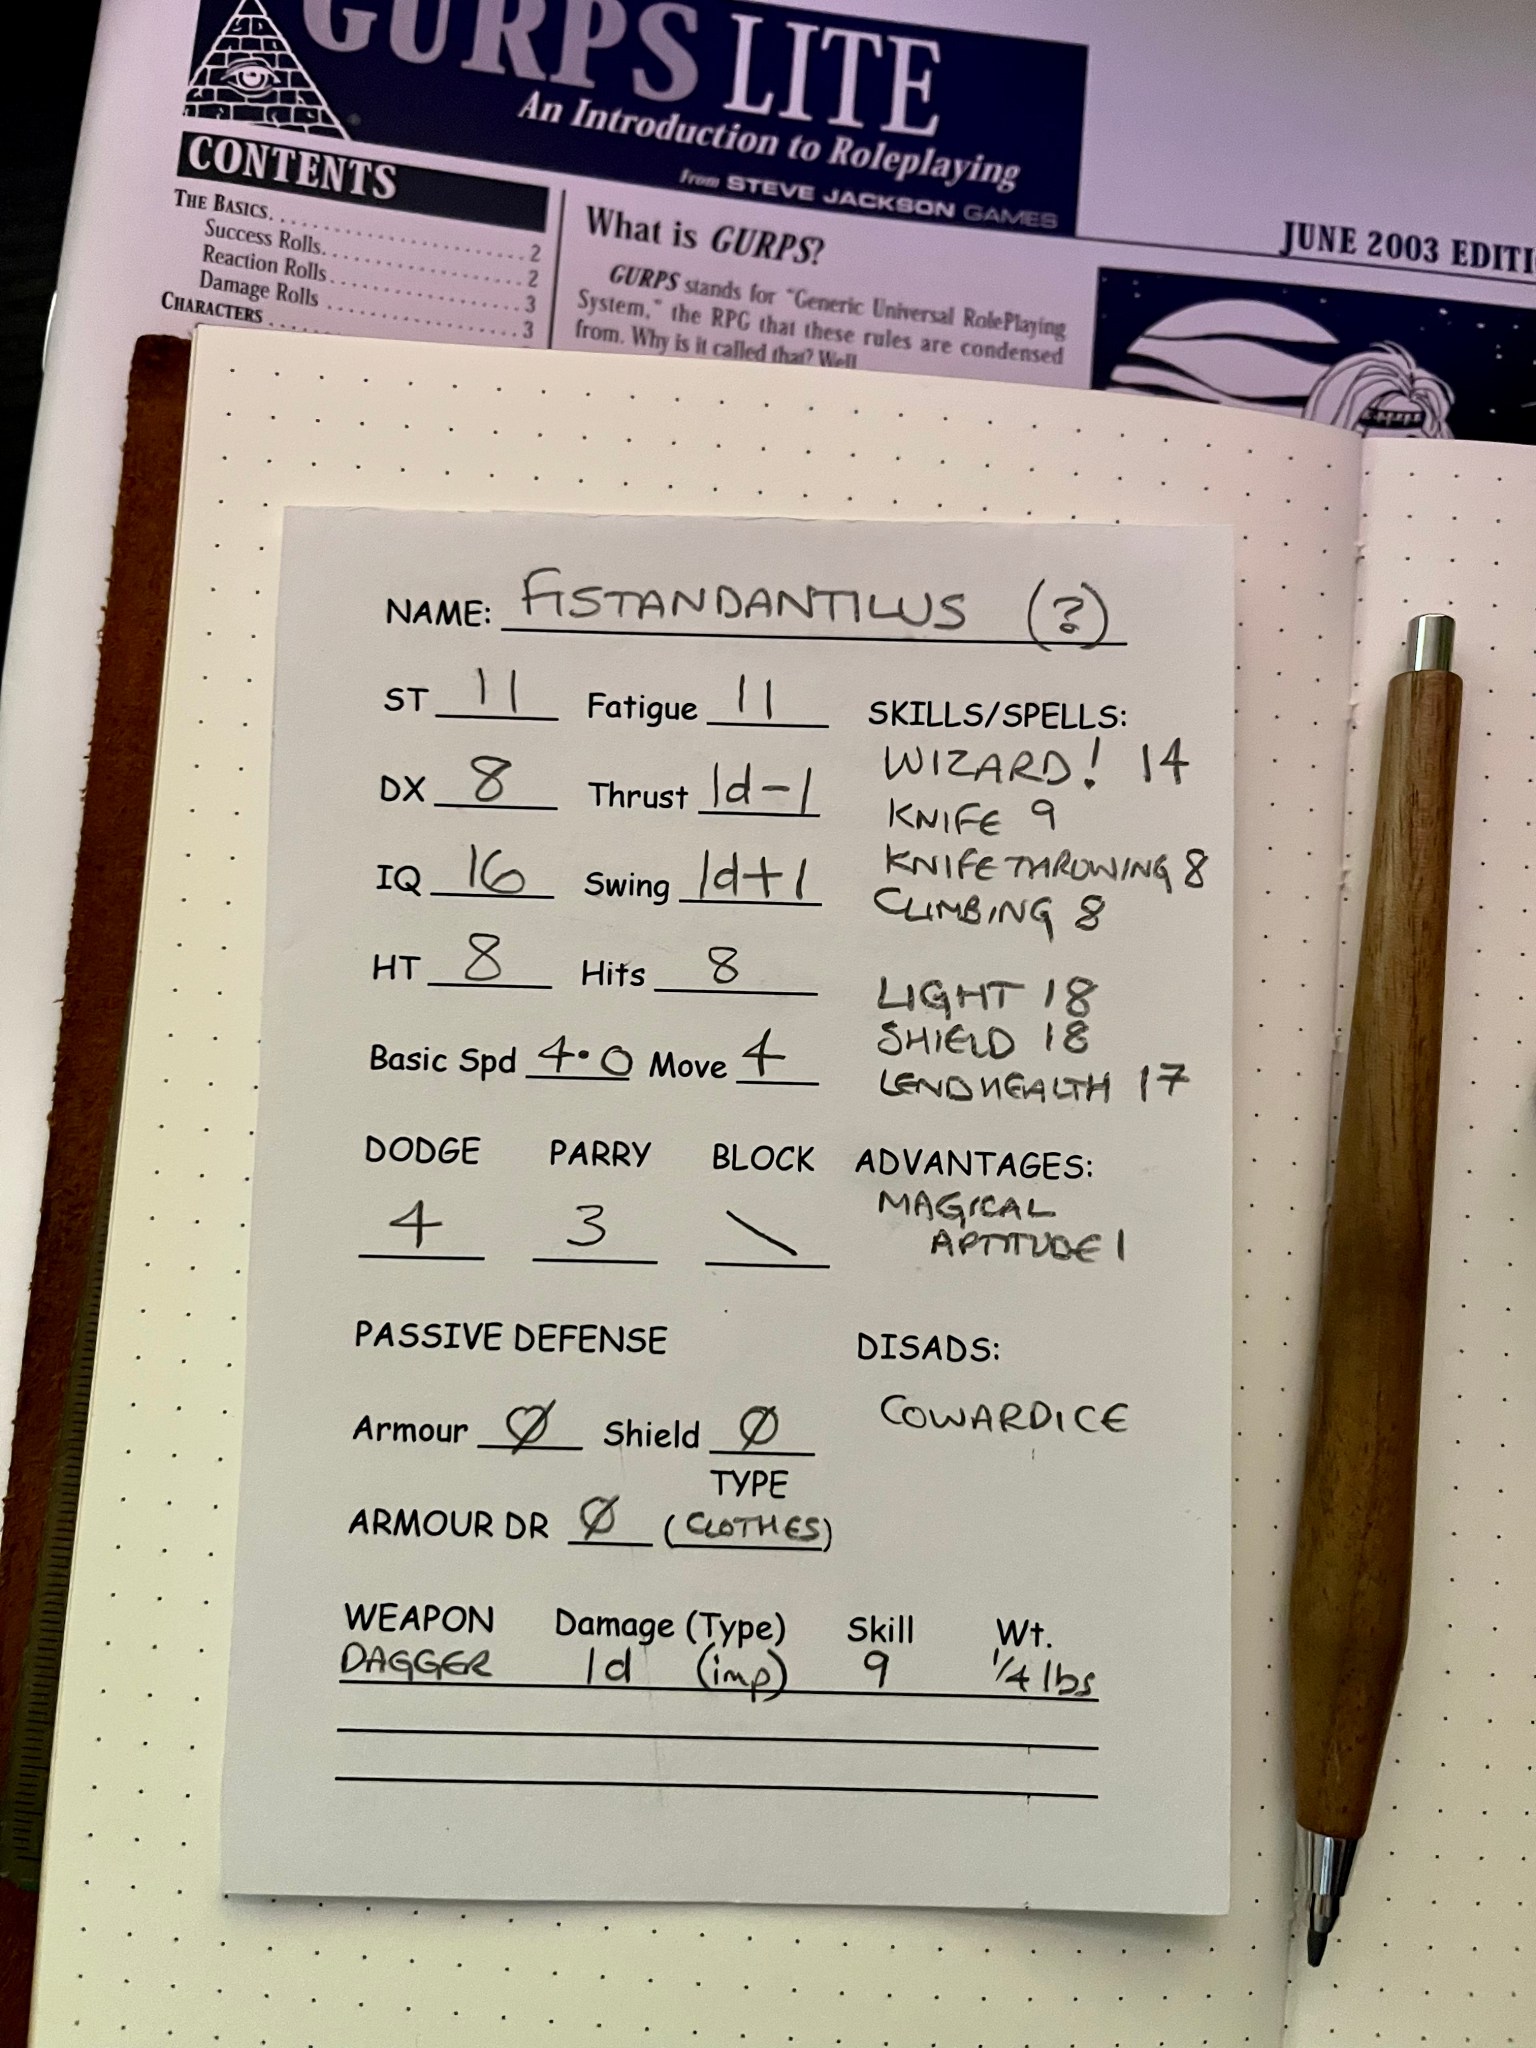 GURPS LITE
An Introduction to Roleplaying
from STEVE JACKSON GAMES
JUNE 2003 EDITI
CONTENTS
THE BASICS. . . . . . . . . . . . . . . . . . . . 2
Success Rolls. . . . . . . . . . . . . . . . . . 2
Reaction Rolls . . . . . . . . . . . . . . . . . 3
Damage Rolls . . . . . . . . . . . . . . . . . 3
CHARACTERS . . . . . . . . . .
What is GURPS?
GURPS stands for "Generic Universal RolePlaying
System," the RPG that these rules are condensed
from. Why is it called that? Well
NAME: FISTANDANTILUS (?)
ST 11 Fatigue 11
DX 8 Thrust 1d-1
IQ 16 Swing 1d+1
HT 8 Hits 8
Basic Spd 4.0 Move 4
DODGE PARRY BLOCK
4 3 \
PASSIVE DEFENSE
Armour Ø Shield Ø
TYPE
ARMOUR DR Ø (CLOTHES)
SKILLS/SPELLS:
WIZARD! 14
KNIFE 9
KNIFE THROWING 8
CLIMBING 8
LIGHT 18
SHIELD 18
LEND HEALTH 17
ADVANTAGES:
MAGICAL
APTITUDE 1
DISADS:
COWARDICE
WEAPON Damage (Type) Skill Wt.
DAGGER 1d (imp) 9 1/4 lbs